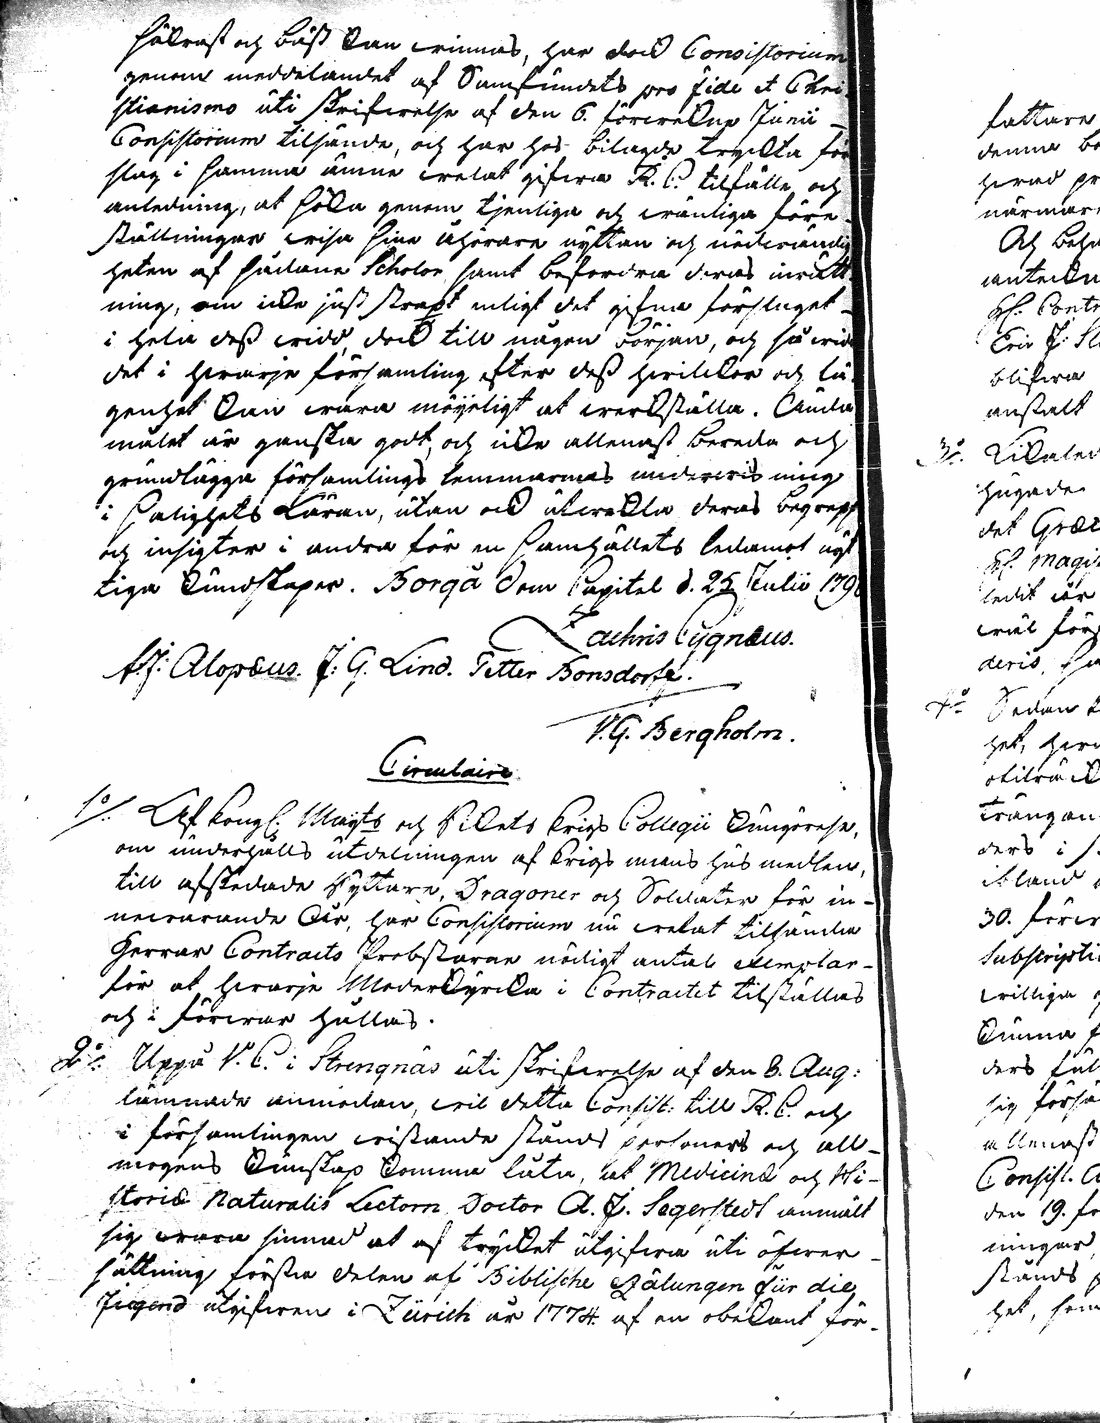 säkrast och bäst kan vinnas, har dock Consistorium
genom meddelandet af Samfundets pro fide et Chri-
stianismo uti skrifvelse af den 6. förvekne Junii
Consistorium tilsände, och har hos bilagde tryckta för
slag i samma ämne velat gifva R. C. tilfälle och
anledning, at söka genom tjenliga och vänliga före-
ställningar visa sine åhörare nyttan och nödvändig
heten af sådane Scholor, samt befordra deras inrätt-
ning, om icke just strax enligt det gifna förslaget
i hela dess vidd, dock till någon början, och så vida
det i hvarje församling efter dess hvilkor och lä-
genhet kan vara möjeligt at verkställa. Ända
målet är ganska godt, och icke allenast bereda och
grundlägga församlings lemmarnas undervisning
i Salighets Läran, utan ock utvekla deras begrepp
och insigter i andra för en Samhällets ledamot nyt
tiga kundskaper. Borgå Dom Capitel d. 25 Julii 179
Zachris Cygnæus.
A. J: Alopæus. J: G. Lind. Petter Bonsdorff.
V. G. Bergholm.
Circulaire
1o/. Af Kongl. Majts och Rikets Krigs Collegii Kungörelse,
om underhålls utdelningen af Krigs mans hus medlen,
till afskedade Ryttare, Dragoner och Soldater för in-
nevarande År, har Consistorium nu velat tilsända
Herrar Contracts Probstarne nödigt antal exemplar
för at hvarje Moderkyrka i Contractet tilställas
och i förvar hållas.
2o: Uppå V. C. i Strengnäs uti skrifvelse af den 8. Aug:
lämnade anmodan, vil detta Consist: till R. C. och
i församlingen vistande stånds personers och all-
mogens kunskap komma låta, at Medicinæ och Hi-
storiæ Naturalis Lectorn, Doctor A. J. Segerstedt anmält
sig vara sinnad at af trycket utgifva uti öfver-
sättning första delen af Biblische Zälungen für die
Jugend utgifven i Zürich år 1774 af en obekant för-
fattare
denna
närmare
Och
anteckn
Eric J:
blifva
anstalt
3o:
hugade
det
H. Magis
ledit
väl för
deris,
4o: Sedan
het,
otilräck
trängan
ders i
ibland
30. förv
Subscripti
villiga
kunna
ders
sig
allenast
Consist.
den 19.
ningar,
stånds
het,